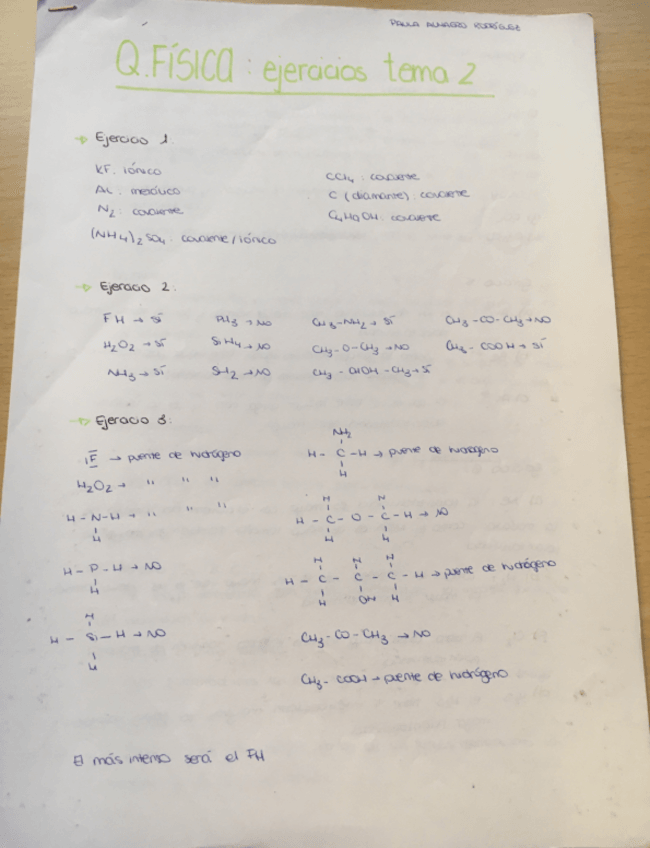 PAULA ALMAGRO RODRÍGUEZ
Q.FÍSICA: ejercicios tema 2
→ Ejercicio 1.
KF: iónico
AL: metálico
N₂: covalente
(NH₄)₂SO₄: covalente/iónico
CCl₄: covalente
C (diamante): covalente
C₄H₉OH: covalente
→ Ejercicio 2.
FH → sí
H₂O₂ → sí
NH₃ → sí
PH₃ → NO
SiH₄ → NO
SH₂ → NO
CH₃-NH₂ → sí
CH₃-O-CH₃ → NO
CH₃-CHOH-CH₃ → sí
CH₃-CO-CH₃ → NO
CH₃-COOH → sí
→ Ejercicio 3:
|F̅ → puente de hidrógeno
H₂O₂ → " " "
H-N-H → " " "
H
H-P-H → NO
H
H
H-Si-H → NO
H
NH₂
H-C-H → puente de hidrógeno
H
H H
H-C-O-C-H → NO
H H
H H H
H-C-C-C-H → puente de hidrógeno
H OH H
CH₃-CO-CH₃ → NO
CH₃-COOH → puente de hidrógeno
El más intenso será el FH